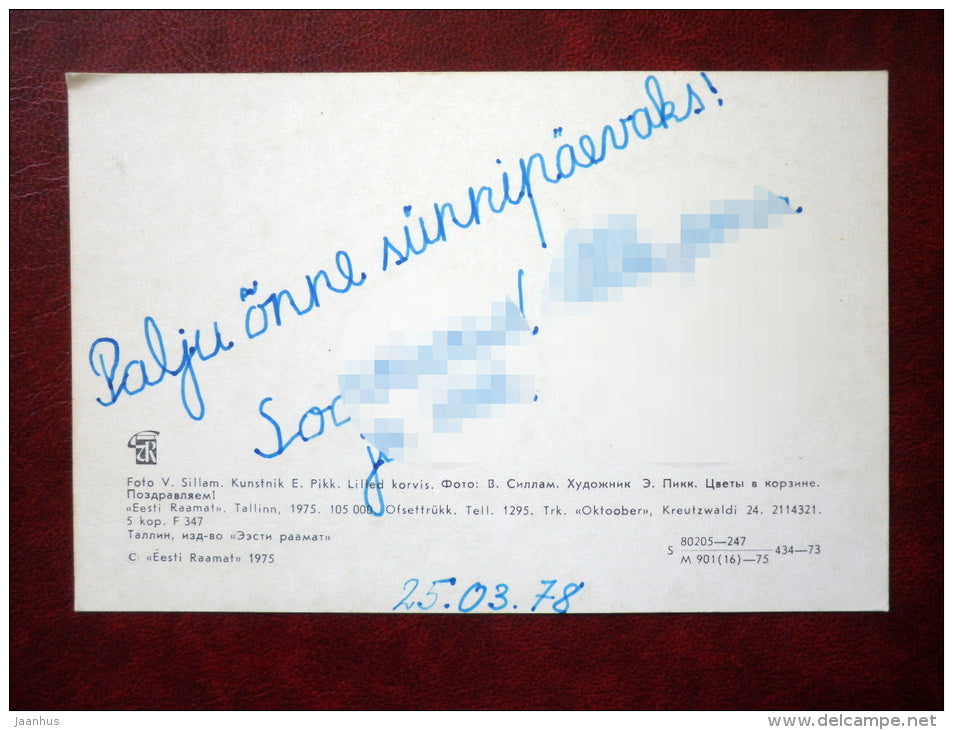 Palju õnne sünnipäevaks!
Foto V. Sillam. Kunstnik E. Pikk. Lilled korvis. Фото: В. Силлам. Художник Э. Пикк. Цветы в корзине.
Поздравляем!
«Eesti Raamat». Tallinn, 1975. 105 000. Ofsettrükk. Tell. 1295. Trk. «Oktoober», Kreutzwaldi 24. 2114321.
5 kop. F 347
Таллин, изд-во «Ээсти раамат»
C «Eesti Raamat» 1975
S 80205—247
М 901(16)—75
434—73
25.03.78
jaanhus
www.delcampe.net